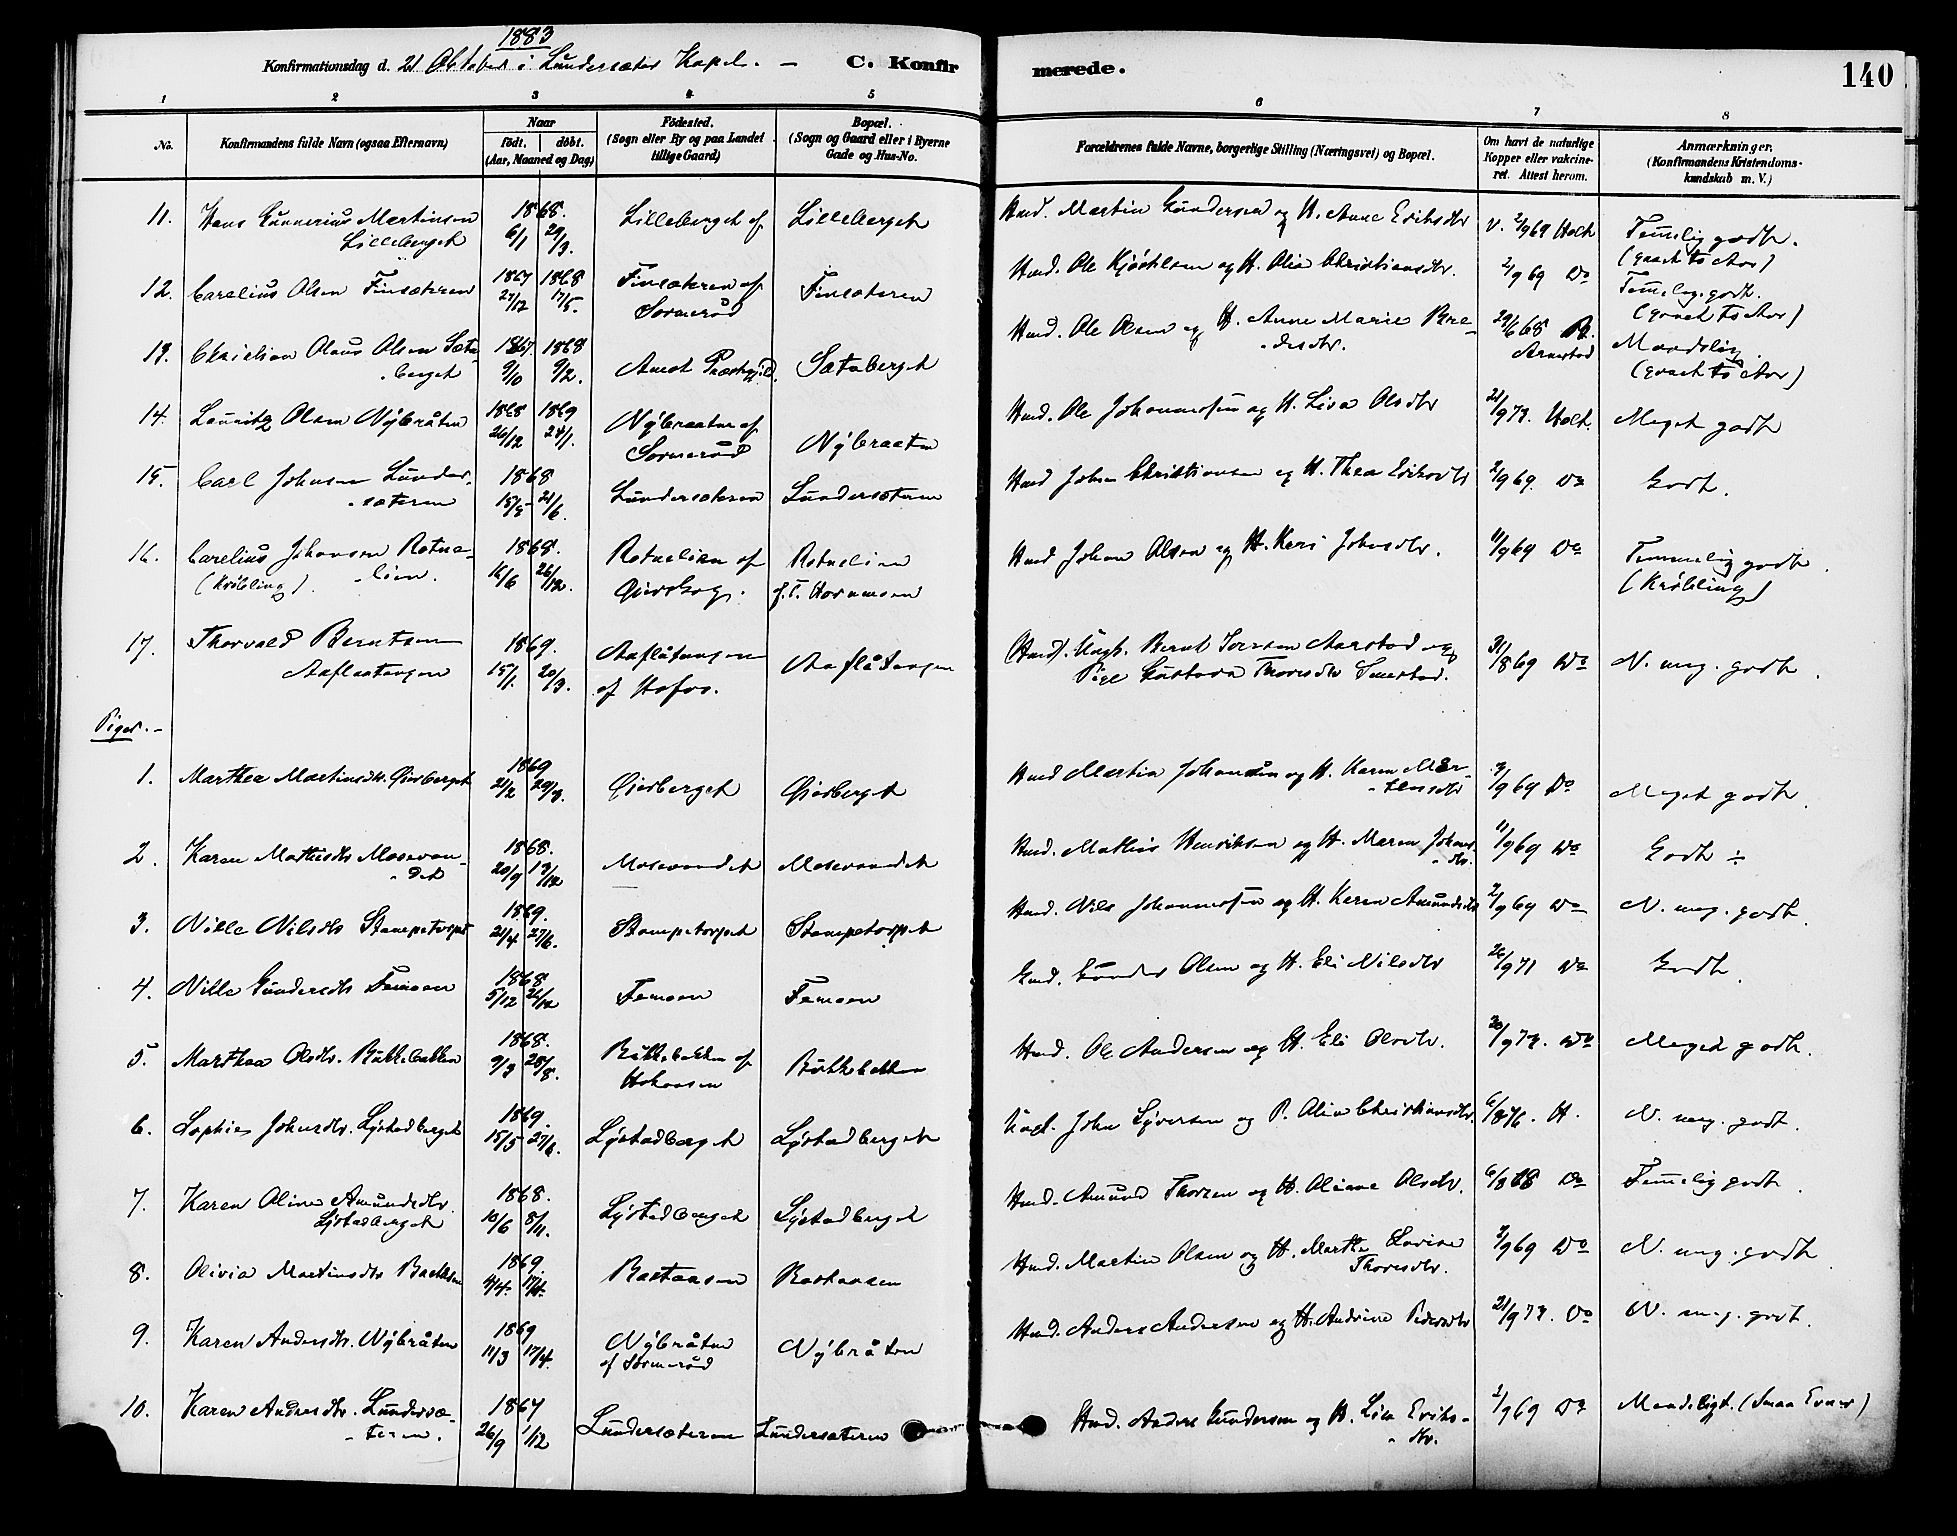 1883
Konfirmationsdag d. 21 Oktober i Lundersæter Kapel. — C. Konfirmerede. 140
1 2 3 4 5 6 7 8
No. Konfirmandens fulde Navn (ogsaa Efternavn) Naar født. døbt. (Aar, Maaned og Dag) Fødested. (Sogn eller By og paa Landet tillige Gaard) Bopæl. (Sogn og Gaard eller i Byerne Gade og Hus-No. Forældrenes fulde Navne, borgerlige Stilling (Næringsvei) og Bopæl. Om havt de naturlige Kopper eller vakcineret. Attest herom. Anmærkninger. (Konfirmandens Kristendomskundskab m. V.)
11. Hans Gunnerius Martinsen Lilleberget 1868. 6/1 29/3. Lilleberget af Lilleberget Hmd. Martin Gundersen og H. Anne Eriksdtr V. 2/9 69 Holt Temmelig godt.
12. Carelius Olsen Finsæteren 1867 27/12 1868 17/5. Finsæteren af Sormerød Finsæteren Hmd. Ole Kjøstelsen og H. Olia Christiansdtr. 2/9 69 Do Temelig godt.
13. Christian Olaus Olsen Sætaberget 1867. 9/10 1868 9/2. Amot Præstegjeld. Sætaberget Hmd. Ole Olsen og H. Anne Marie Bredesdtr. 29/6 68 Maadelig.
14. Lauritz Olsen Nÿbråten 1868 26/12 1869 24/1. Nÿbraaten af Sormerød Nÿbraaten Hmd. Ole Johannessen og H. Lisa Olsdtr 21/9 77. Holt. Meget godt
15. Carl Johnsen Lundersæteren 1868 15/5 21/6. Lundersæteren Lundersæteren Hmd John Christiansen og H. Thea Eriksdtr 2/9 69. Do Godt.
16. Carelius Johansen Rotnelien. (Krøbling). 1868. 16/6 26/12. Rotnelien af Qierskog. Rotnelien Hmd Johan Olsen og H. Keri Johnsdtr. 11/9 69 Do Temmelig godt. (Krøbling)
17. Thorvald Berntsen Aaflaatangen 1869. 15/1. 20/3. Aaflåtangen af Hofos. Aaflåtangen (Hmd). Ungk. Bernt Iversen Aarstad og Pige Gustava Thoresdtr 31/8 69 Do N. meg. godt.
Piger. —
1. Marthea Martinsdtr. Qiersberget 1869 21/2 29/3. Qiersberget Qiersberget Hmd Martin Johansen og H. Karen Mortensdtr 3/9 69 Do Meget godt.
2. Karen Mathisdtr Mosevandet 1868. 20/9 13/12 Mosevandet Mosevandet Hmd. Mathis Henriksen og H. Maren Johansdtr. 11/9 69 Do Godt ÷
3. Nille Nilsdtr Stampetorpet 1869. 21/4 27/6. Stampetorpet Stampetorpet Hmd. Nils Johannessen og H. Karen Amundsdtr 2/9 69 Do N. meg. godt.
4. Nille Gundersdtr Femoen 1868 5/12 26/12 Femoen Femoen Gmd. Gunder Olsen og H. Eli Nilsdtr 26/9 71 Do Godt.
5. Marthea Olsdtr. Bukkebakken 1868. 9/3 28/8. Bukkebakken af Hokaasen Bukkebakken Hmd. Ole Andersen og H. Eli Olsdtr. 20/9 77. Do Meget godt.
6. Sophie Johnsdtr. Lystadberget 1869. 15/5 27/6. Lystadberget Lystadberget Ungk. John Syversen og P. Olia Christiansdtr. 6/8 76. H. N. meg. godt.
7. Karen Oline Amundsdtr. Lystadberget 1868. 10/6 8/11. Lystadberget Lystadberget Hmd. Amund Thorsen og H. Oliane Olsdtr. 6/8 68 Do Temmelig godt.
8. Olivia Martinsdtr 1869. 4/4. Hmd. Martin Olsen og H. Marthe Lovise Thoresdtr. 3/9 69 Do N. meg. godt.
9. Karen Andersdtr. Nÿbråten 1869 11/3 17/4. Nÿbråten af Sormerød Nÿbråten Hmd. Anders Andersen og H. Andrine Pedersdtr 21/9 77. Do N. meg. godt.
10. Karen Andersdtr. Lundersæteren. 1867 26/9 1/12 Lundersæteren Lundersæteren Hmd. Anders Gundersen og H. Lisa Eriksdtr. 2/9 69 Do Maadeligt. (Smaa Evner)